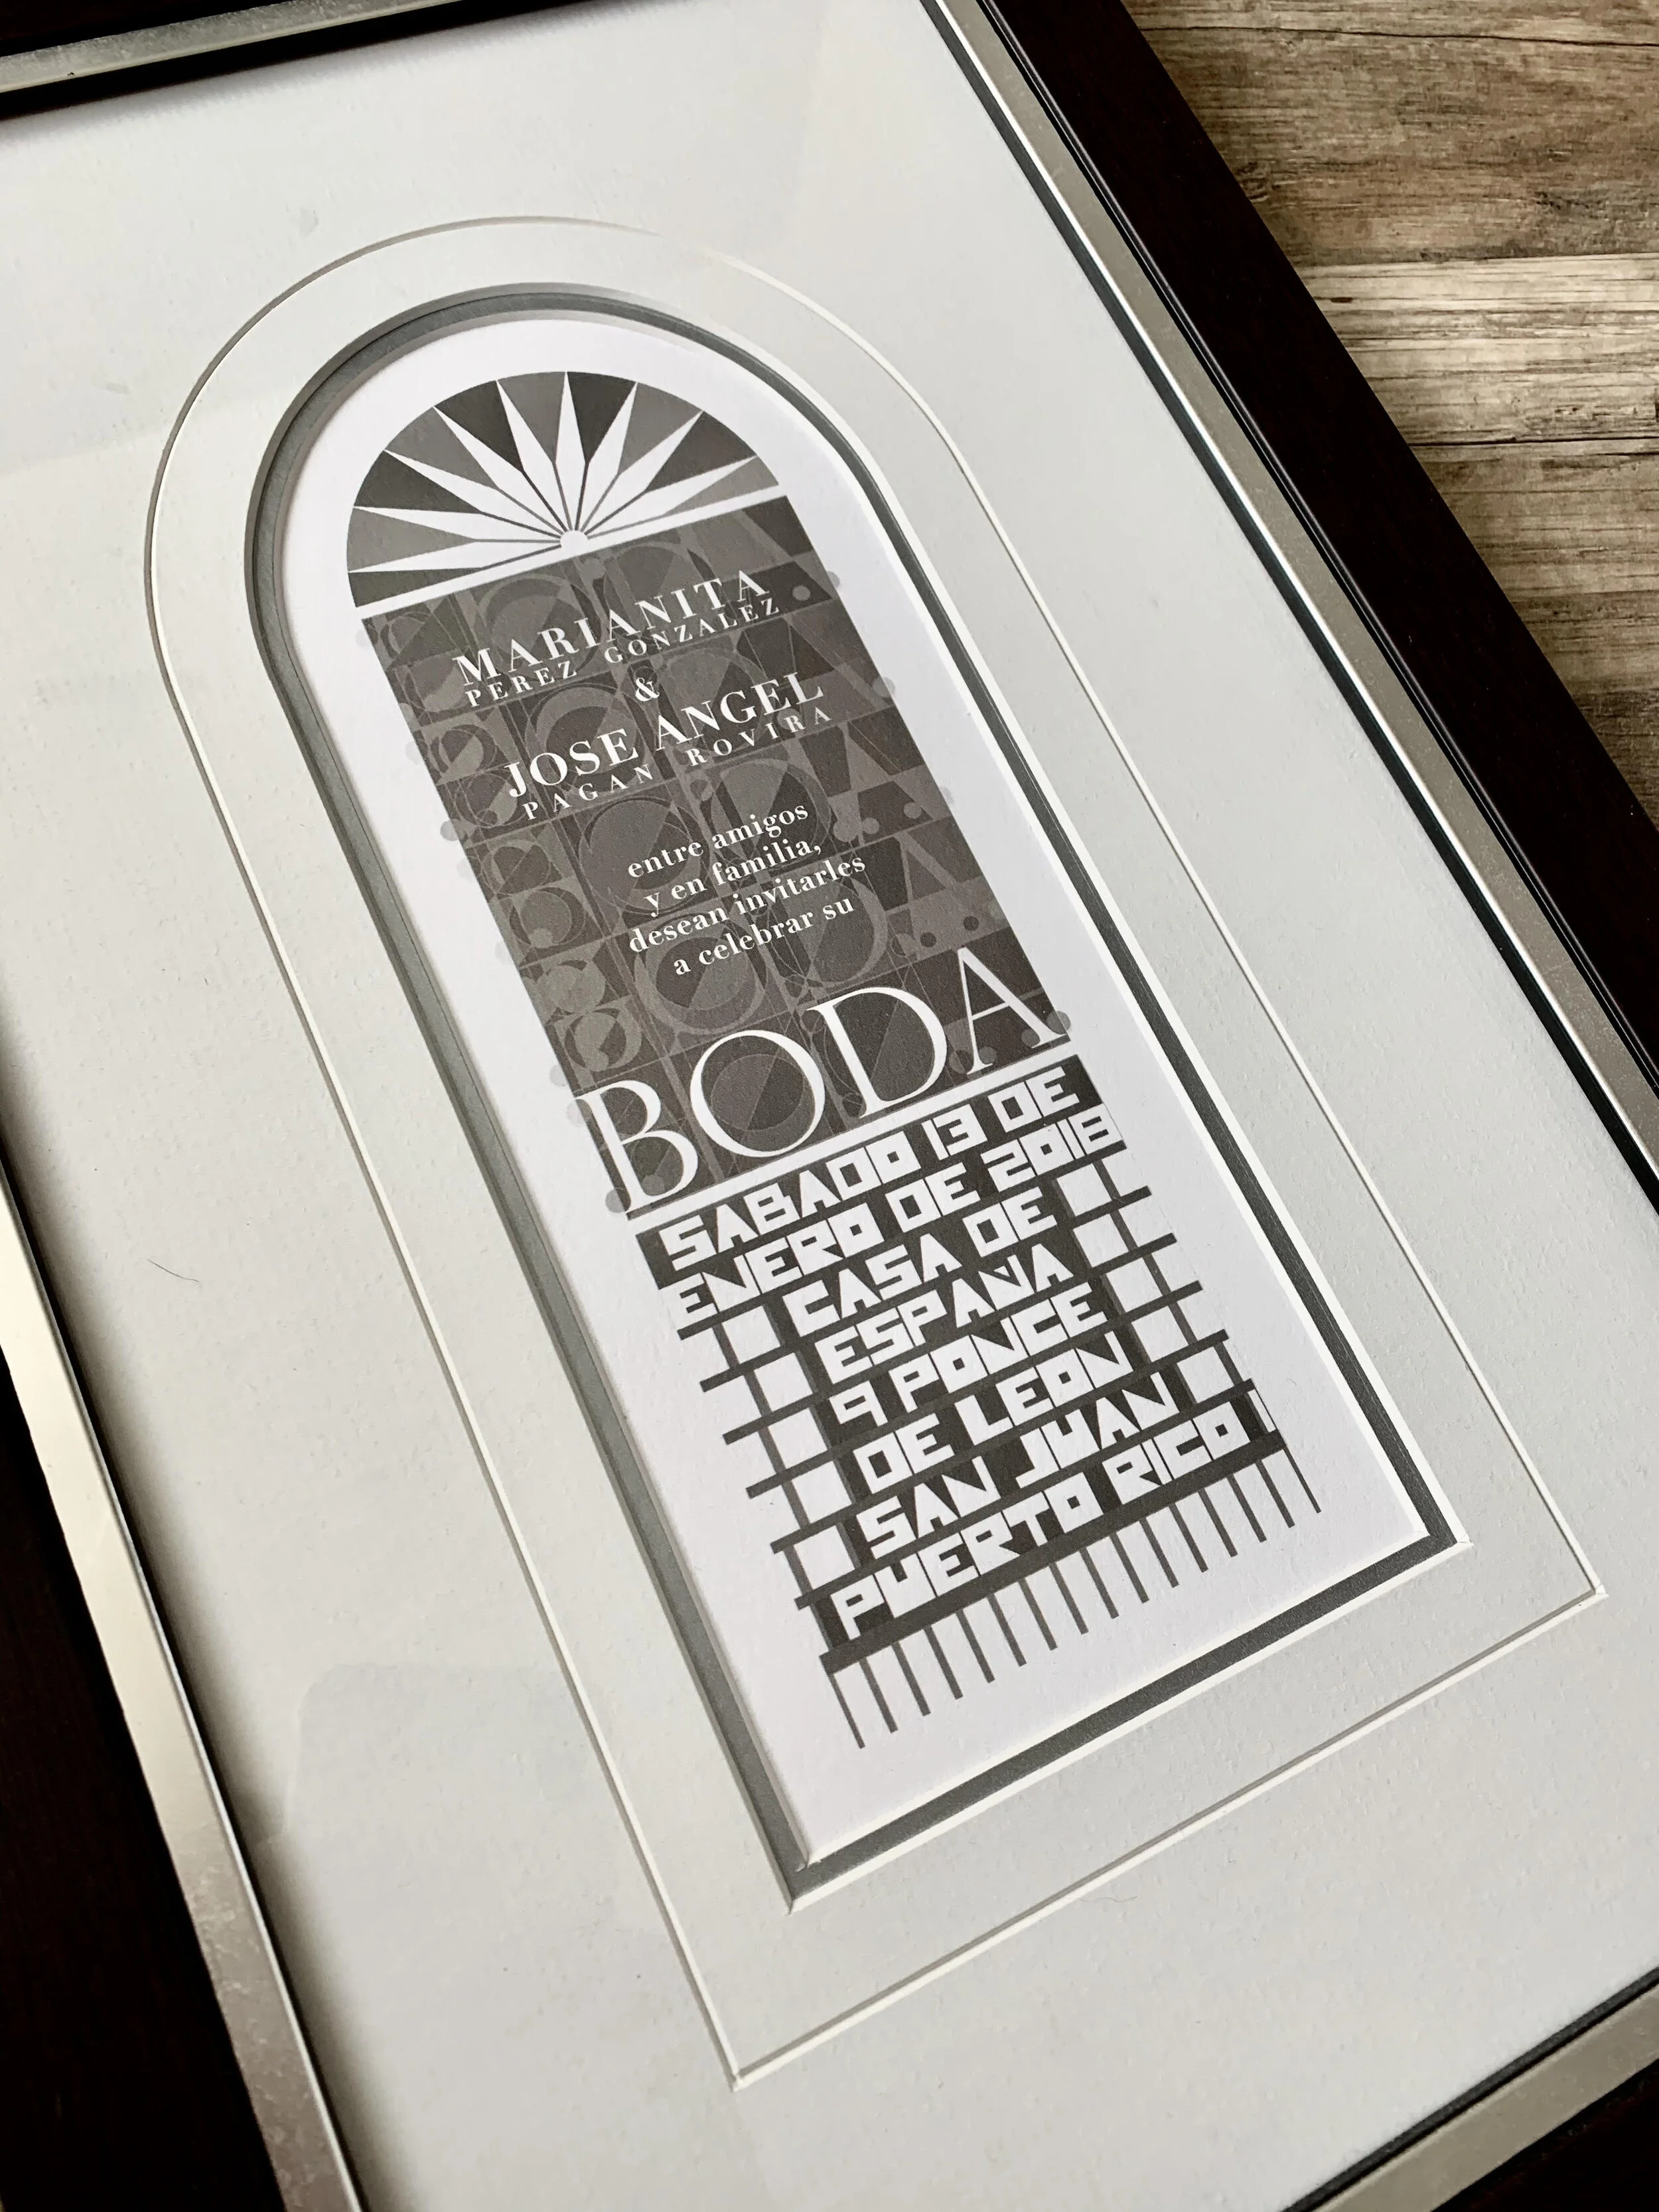 MARIANITA
PEREZ GONZALEZ
&
JOSE ANGEL
PAGAN ROVIRA
entre amigos
y en familia,
desean invitarles
a celebrar su
BODA
SABADO 13 DE
ENERO DE 2018
CASA DE
ESPAÑA
9 PONCE
DE LEON
SAN JUAN
PUERTO RICO